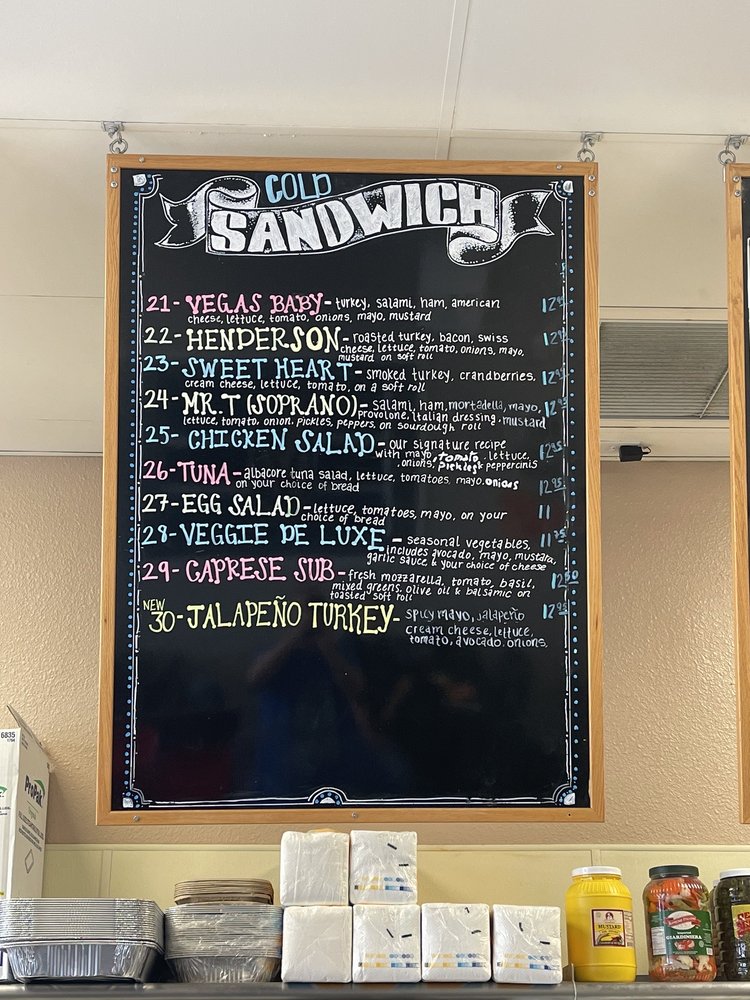 COLD
SANDWICH
21- VEGAS BABY- turkey, salami, ham, american 12.95
cheese, lettuce, tomato, onions, mayo, mustard
22- HENDERSON- roasted turkey, bacon, swiss
cheese, lettuce, tomato, onions, mayo,
mustard on soft roll
23- SWEET HEART- smoked turkey, crandberries.
cream cheese, lettuce, tomato, on a soft roll
24- MR.T (SOPRANO)- salami, ham, mortadella, mayo,
provolone, Italian dressing, mustard
lettuce, tomato, onion, pickles, peppers, on sourdough roll
25- CHICKEN SALAD- our signature recipe 12.95
with mayo, tomato, lettuce,
onions, pickles & peppercinis
26- TUNA- albacore tuna salad, lettuce, tomatoes, mayo, onions 12.95
on your choice of bread
27- EGG SALAD- lettuce, tomatoes, mayo, on your 11
choice of bread
28- VEGGIE DE LUXE- seasonal vegetables, 11.75
includes avocado, mayo, mustard,
garlic sauce & your choice of cheese
29- CAPRESE SUB- fresh mozzarella, tomato, basil, 12.50
mixed greens, olive oil & balsamic on
toasted soft roll
NEW
30- JALAPEÑO TURKEY- spicy mayo, jalapeño 12.95
cream cheese, lettuce,
tomato, avocado, onions.
6835
ProPak
MUSTARD
GIARDINIERA